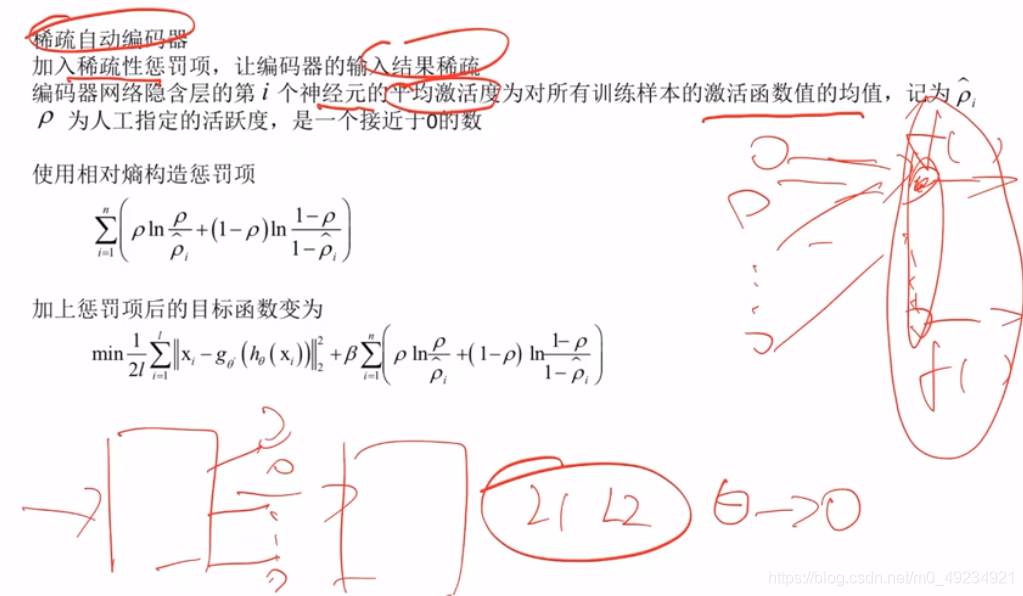 稀疏自动编码器
加入稀疏性惩罚项，让编码器的输入结果稀疏
编码器网络隐含层的第 i 个神经元的平均激活度为对所有训练样本的激活函数值的均值，记为 ρ̂ᵢ
ρ 为人工指定的活跃度，是一个接近于0的数
f( )
使用相对熵构造惩罚项
\sum_{i=1}^{n}\left(\rho\ln\frac{\rho}{\hat{\rho}_i}+(1-\rho)\ln\frac{1-\rho}{1-\hat{\rho}_i}\right)
加上惩罚项后的目标函数变为
\min\frac{1}{2l}\sum_{i=1}^{l}\left\|x_i-g_{\theta'}(h_\theta(x_i))\right\|_2^2+\beta\sum_{i=1}^{n}\left(\rho\ln\frac{\rho}{\hat{\rho}_i}+(1-\rho)\ln\frac{1-\rho}{1-\hat{\rho}_i}\right)
f( )
L1 L2 θ→0
https://blog.csdn.net/m0_49234921